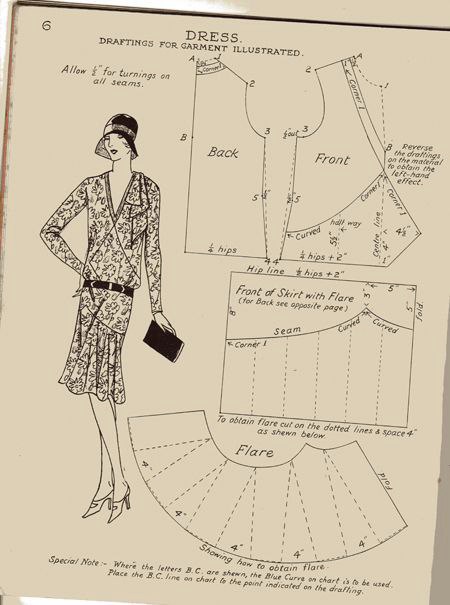 6
DRESS.
DRAFTINGS FOR GARMENT ILLUSTRATED.
Allow ½" for turnings on
all seams.
A
1
Corner 1
2
B
3
Back
5
¼ hips
4
A
1
Corner 1
2
3
½ out
Front
5
B
Reverse
the draftings
on the material
to obtain the
left-hand
effect.
Corner 1
Corner 1
Curved
half way
5½"
Centre line
4"
4½"
1"
4
¼ hips + 2"
¼ hips + 2"
Hip line ½ hips + 2"
Front of Skirt with Flare
(for Back see opposite page)
3"
5"
fold.
8"
Seam
Curved
Curved
5"
Corner 1
To obtain flare cut on the dotted lines & space 4"
as shewn below.
Flare
Fold
4"
4"
4"
4"
4"
Showing how to obtain flare.
Special Note:- Where the letters B.C. are shewn, the Blue Curve on chart is to be used.
Place the B.C. line on chart to the point indicated on the drafting.